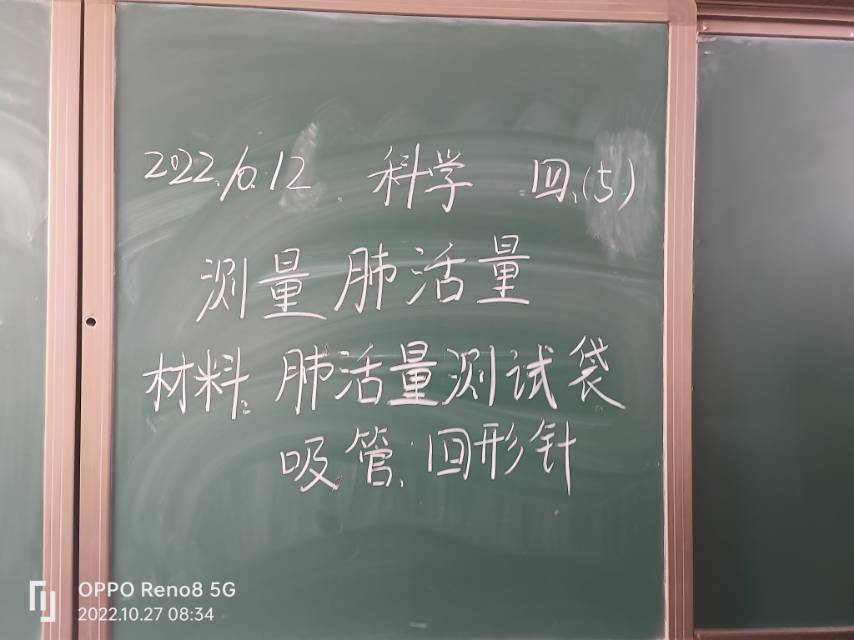 2022.10.12 科学 四.(5)
测量肺活量
材料: 肺活量测试袋
吸管、回形针
OPPO Reno8 5G
2022.10.27 08:34